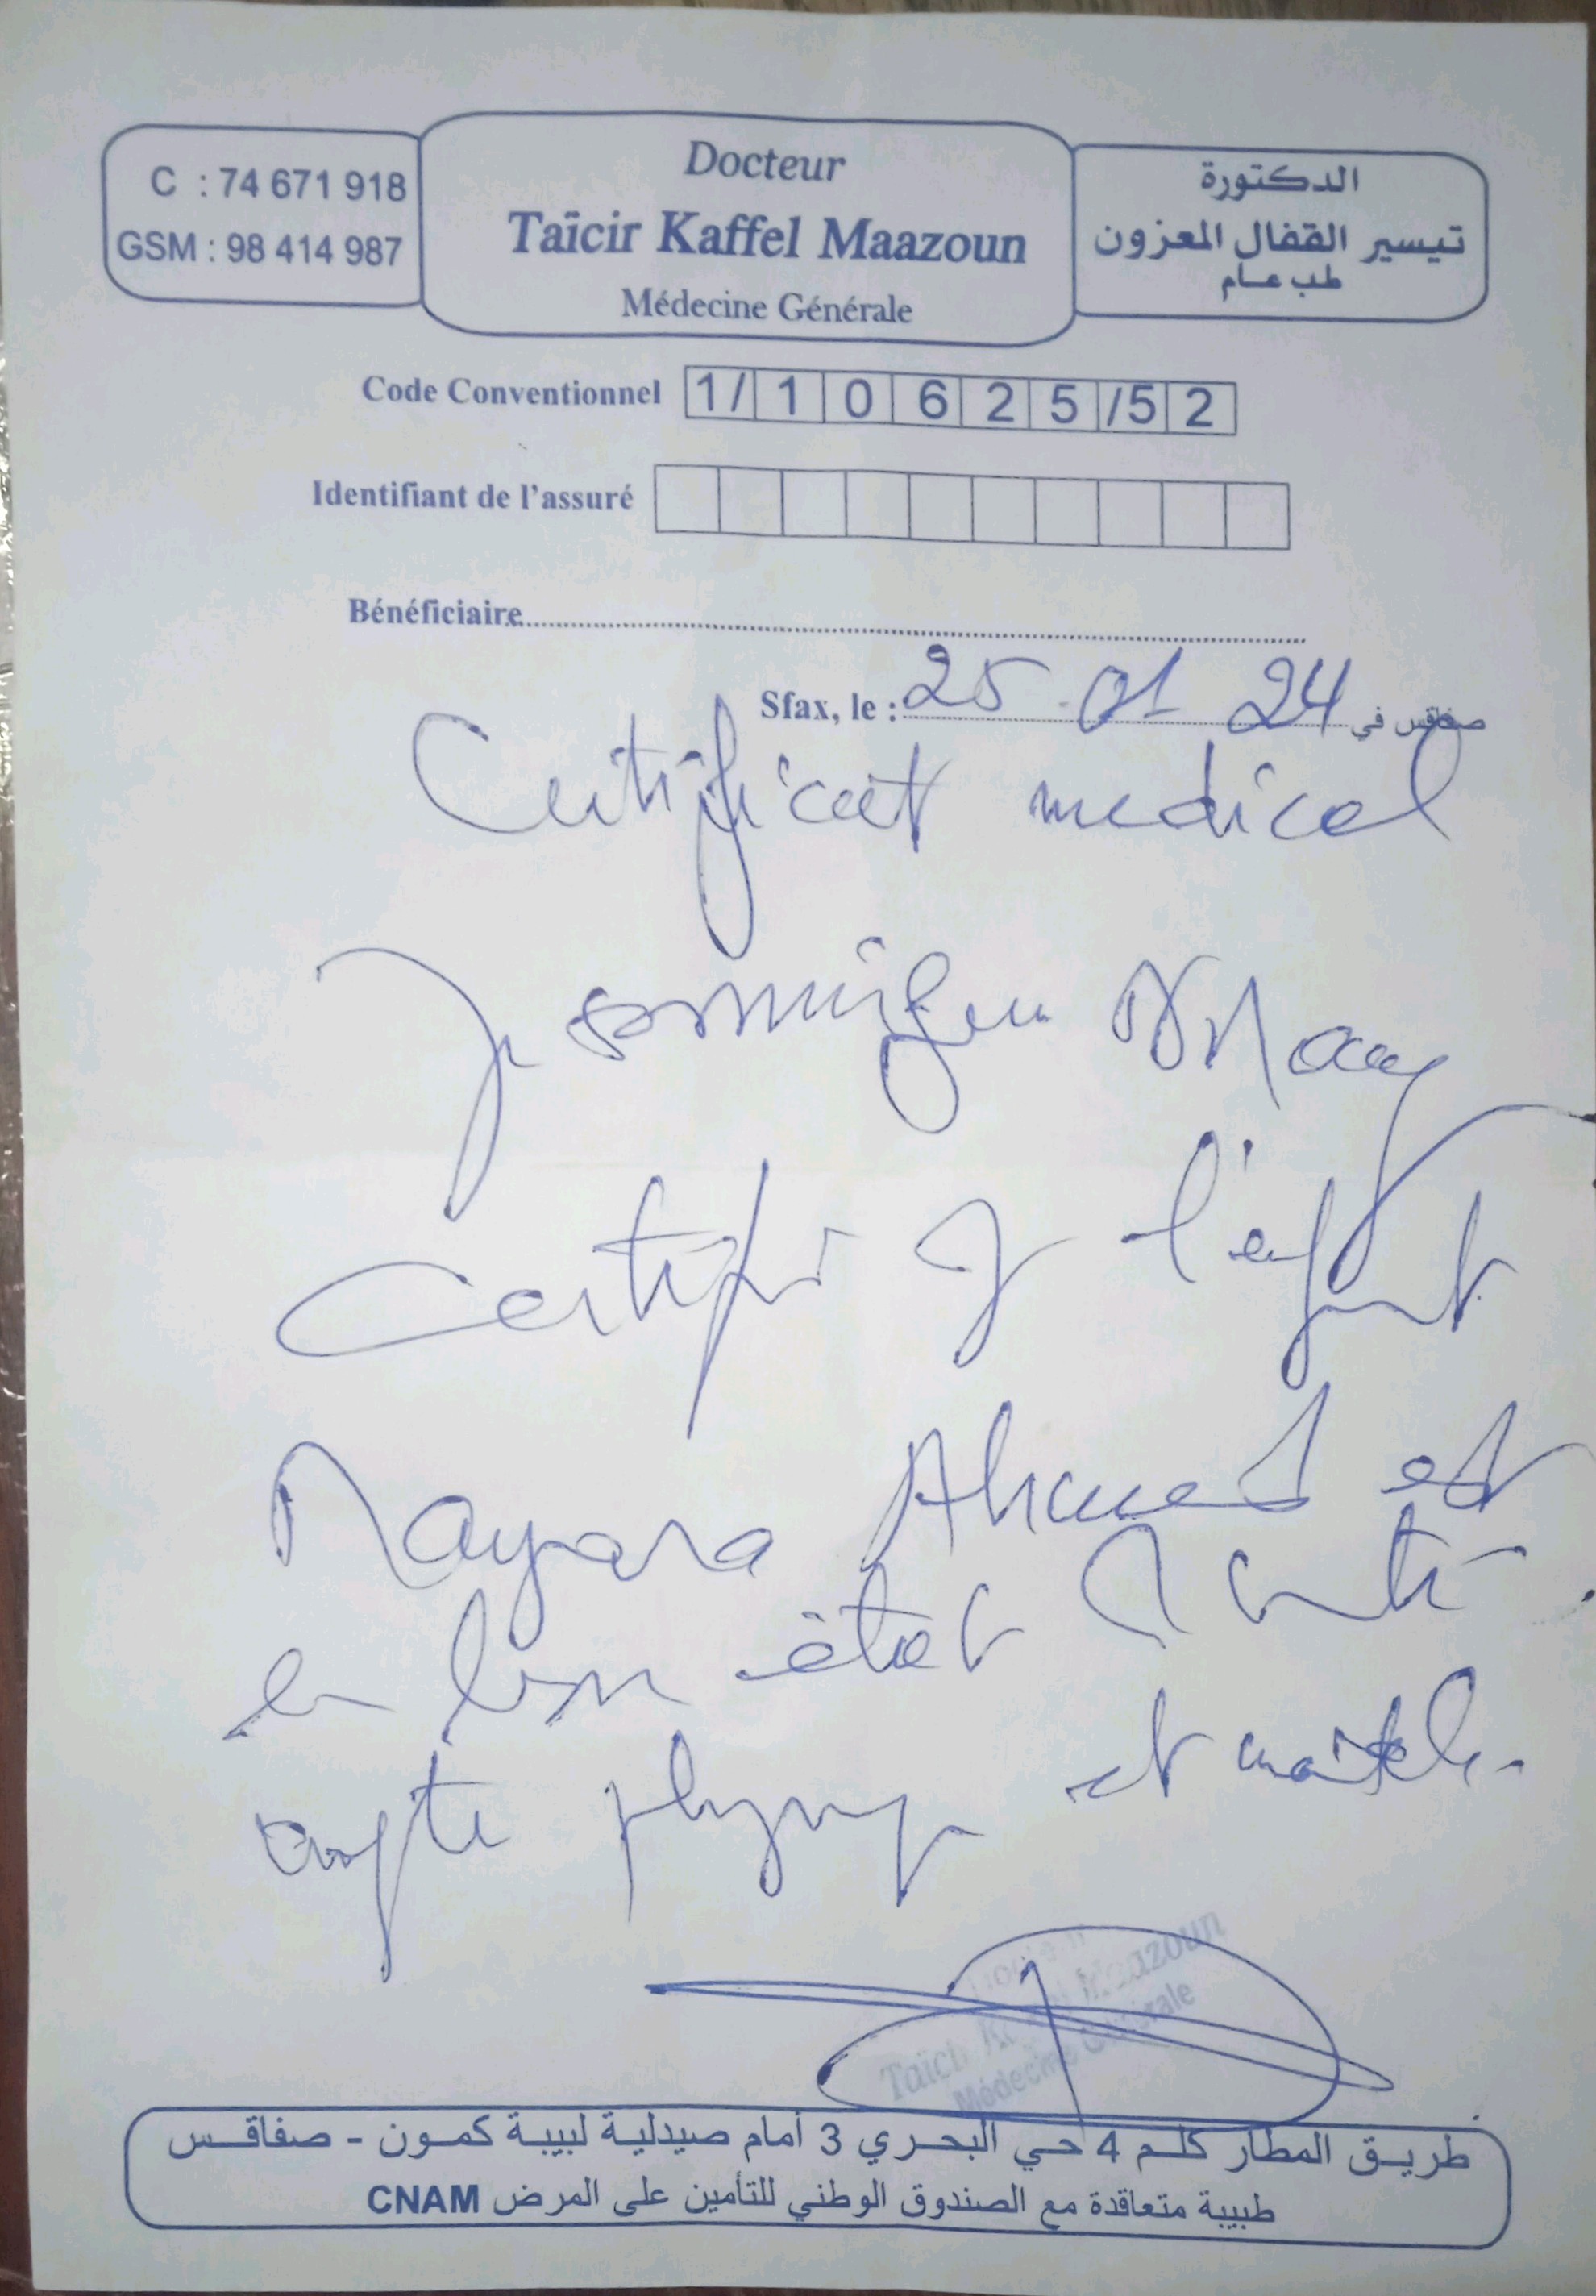 C : 74 671 918
GSM : 98 414 987
Docteur
Taïcir Kaffel Maazoun
Médecine Générale
الدكتورة
تيسير القفال المعزون
طب عام
Code Conventionnel 1/10625/52
Identifiant de l'assuré
Bénéficiaire
Sfax, le : 25 . 01 24 صفاقس في
Certificat medical
Je soussignée Dr Maaz
Certifie q l'enfant
Nayara Ahmed est
en bon état santé
physiq et
Taïcir Kaffel Maazoun
Médecine Générale
طريق المطار كلم 4 حي البحري 3 أمام صيدلية لبيبة كمون - صفاقس
طبيبة متعاقدة مع الصندوق الوطني للتأمين على المرض CNAM